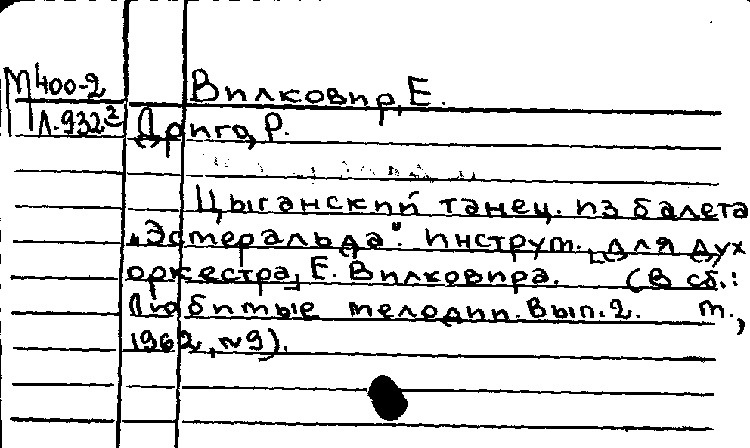 М400-2
Вилковир, Е.
Л.932²
Дриго, Р.
Цыганский танец. из балета
„Эсмеральда“. Инструм., для дух
оркестра, Е. Вилковира. (В сб.:
Любимые мелодии. Вып. 2. М.,
1962, №9).